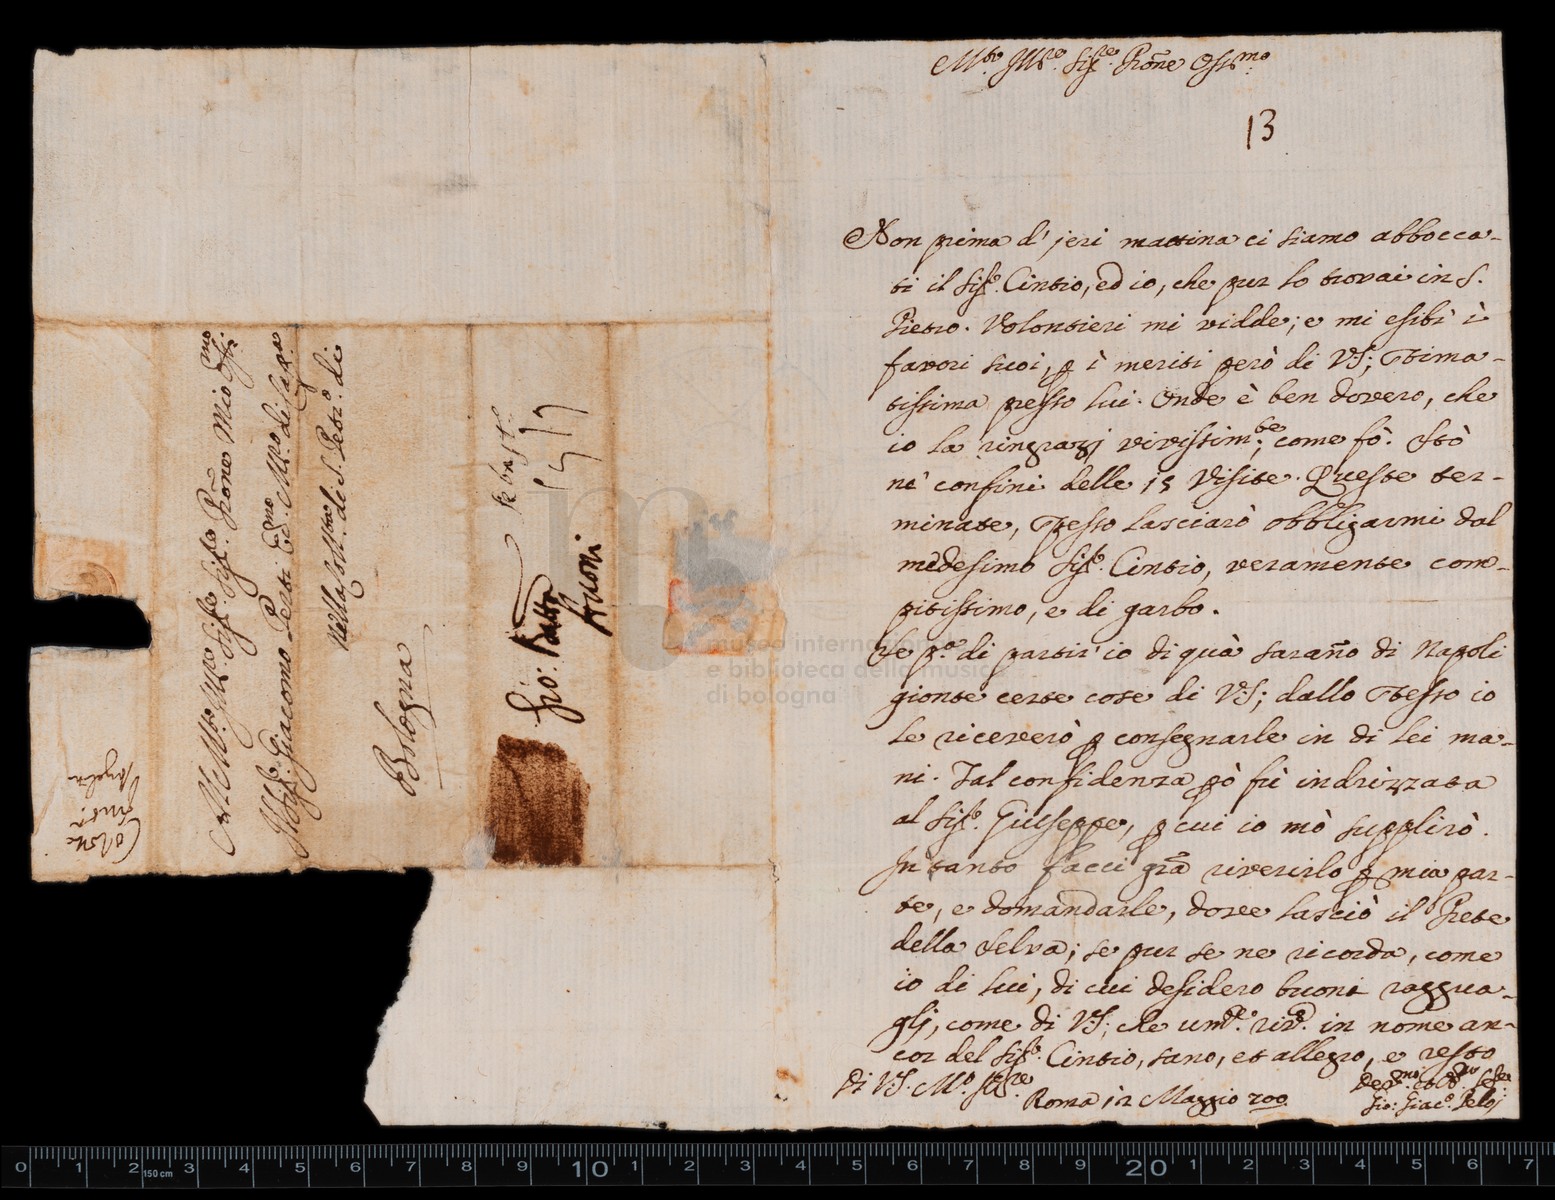 M.to Ill.re Sig.re Prone Oss.mo
13
Non prima d' jeri mattina ci siamo abbocca-
ti il Sig.r Cintio, ed io, che pur lo trovai in S.
Pietro. Volontieri mi vidde; e mi esibì i
favori suoi, p i meriti però di VS; stima-
tissima presso lui. Onde è ben dovero, che
io la ringrazj vivissim.te; come fò. Stò
ne' confini delle 15 Visite. Queste ter-
minate, spesso lasciarò obbligarmi dal
medesimo Sig.r Cintio, veramente com-
pitissimo, e di garbo.
Se p.a di partir' io di quà saranno di Napoli
gionte certe cose di VS; dallo stesso io
le riceverò p consegnarle in di lei ma-
ni. Tal confidenza pò fù indrizzata
al Sig.r Giuseppe, p cui io mò supplirò.
In tanto facci gra riverirlo p mia par-
te, e domandarle, dove lasciò il Prete
della Selva; se pur se ne ricorda, come
io di lui, di cui desidero buoni raggua-
glj, come di VS; che um.te riv. in nome an-
cor del Sig.r Cintio, sano, et allegro, e resto
Di VS. M.o Ill.re
Roma 12 Maggio 700
Dev.mo et Obb.
Gio: Giac.o Peloj
Al M.to Ill.re Sig.re Sig.r Prone Mio Oss.mo
Il Sig.r Giacomo Perti Degno M.ro di Cap.a
Nella Coll.ta di S. Petr.o di
Bologna
Gio: Batta